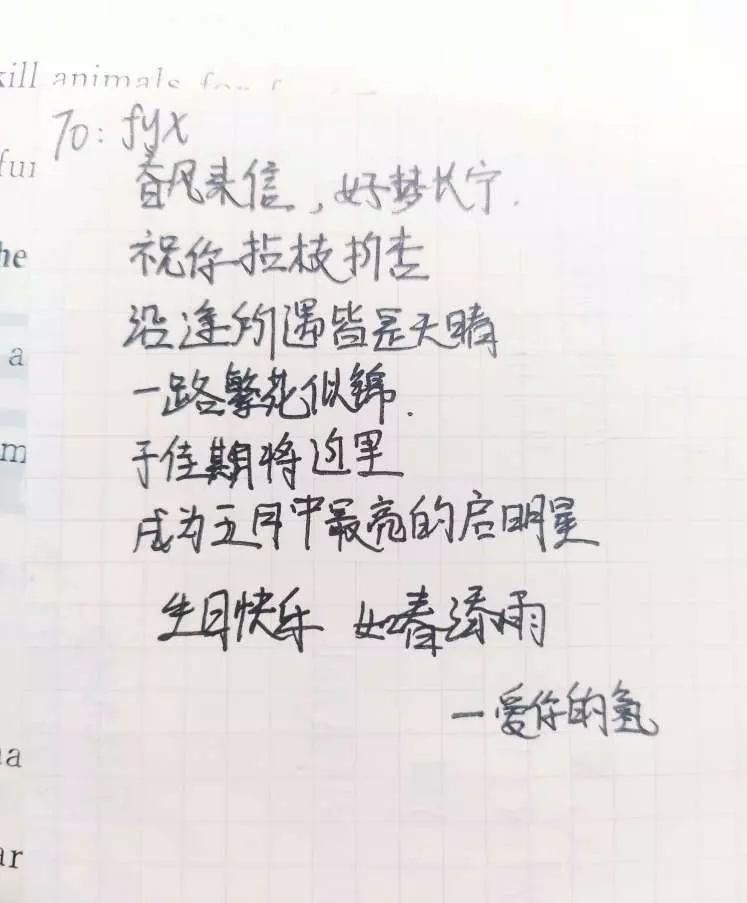 kill animals for
To: fyx
春风来信,好梦长宁.
祝你拈枝折杏
he
沿途所遇皆是天晴
a
一路繁花似锦.
于佳期将这里
m
成为五月中最亮的启明星
生日快乐 如春添雨
—爱你的氢
ar